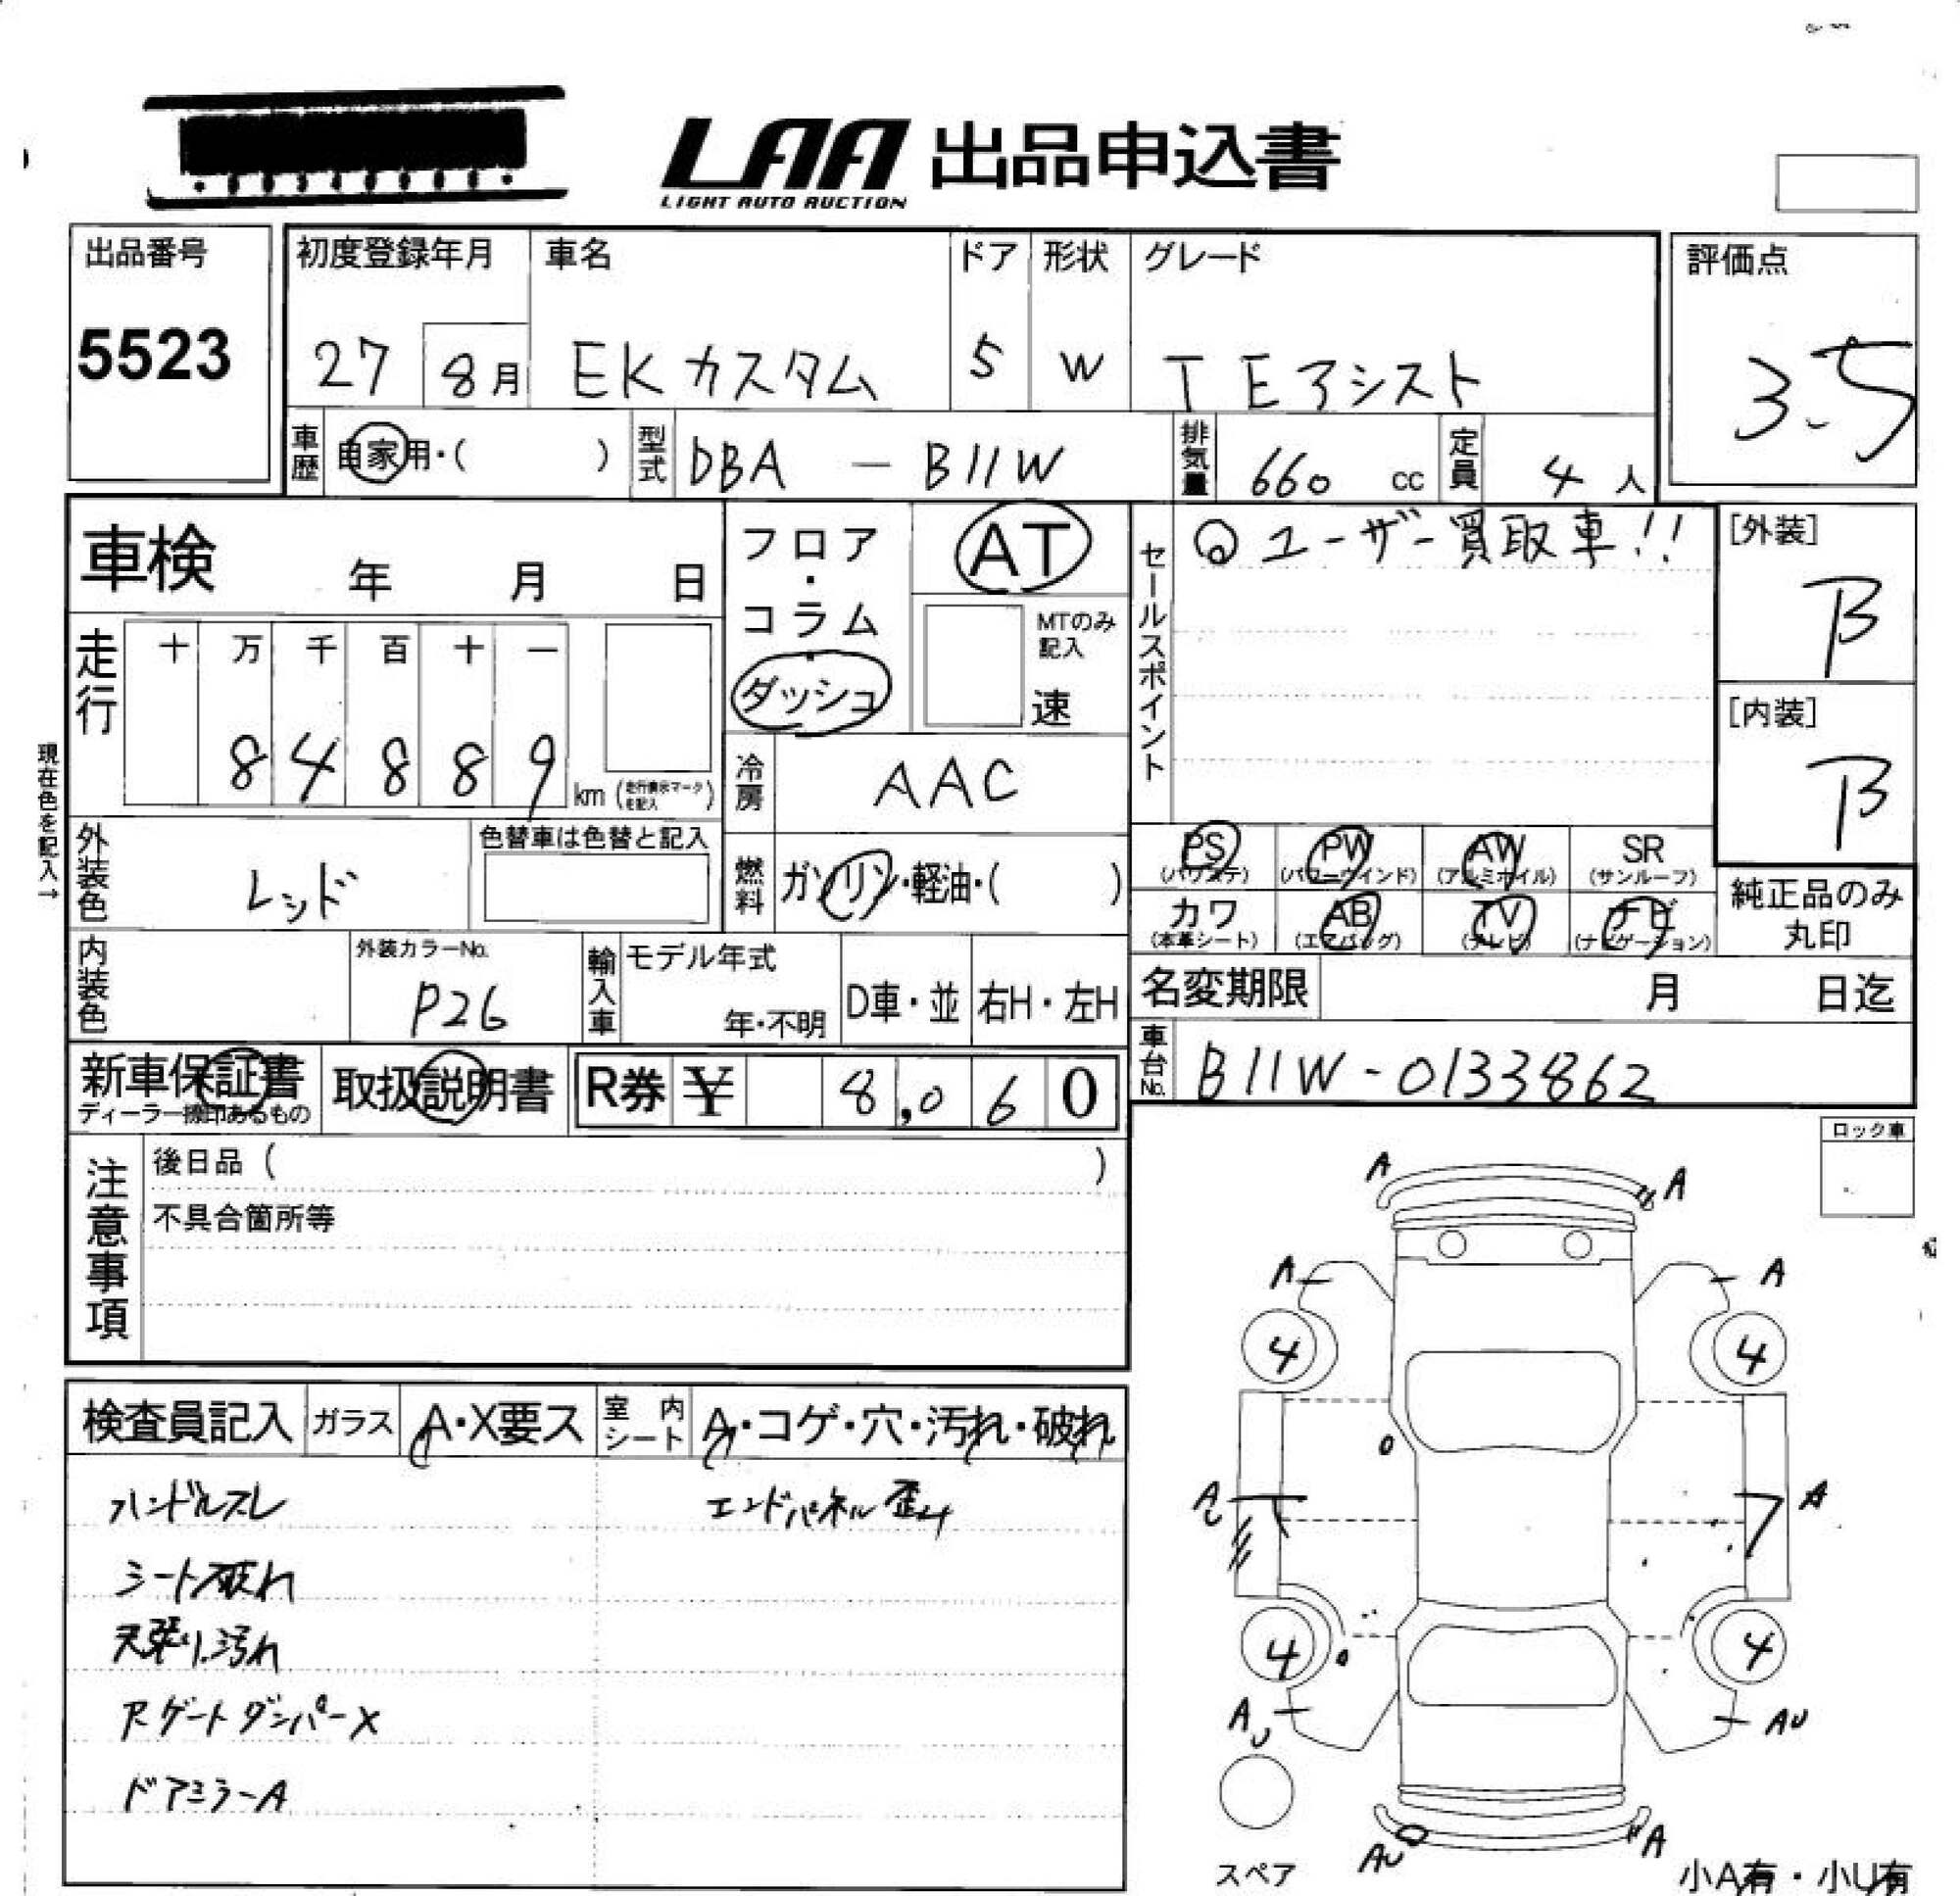 LAA 出品申込書
LIGHT AUTO AUCTION
出品番号
5523
初度登録年月 車名 ドア 形状 グレード
27 8月 EKカスタム 5 W T Eアシスト
評価点
3.5
車歴 自家用・( ) 型式 DBA - B11W 排気量 660 cc 定員 4 人
車検 年 月 日
フロア・コラム・ダッシュ
AT
MTのみ記入
速
セールスポイント
◎ユーザー買取車!!
[外装]
B
[内装]
B
走行
十 万 千 百 十 一
8 4 8 8 9
km (走行表示マークを記入)
現在色を記入→
冷房 AAC
外装色 レッド
色替車は色替と記入
燃料 ガソリン・軽油・( )
PS PW AW SR
(パワステ) (パワーウインド) (アルミホイル) (サンルーフ)
カワ AB TV ナビ
(本革シート) (エアバッグ) (テレビ) (ナビゲーション)
純正品のみ
丸印
内装色
外装カラーNo.
P26
輸入車 モデル年式
年・不明
D車・並 右H・左H
名変期限 月 日迄
車台No. B11W-0133862
新車保証書
ディーラー捺印あるもの
取扱説明書
R券 ¥ 8,060
注意事項
後日品 ( )
不具合箇所等
ロック車
検査員記入 ガラス A・X要ス 室内シート A・コゲ・穴・汚れ・破れ
ハンドルスレ エンドパネル歪み
シート破れ
天張り汚れ
Rゲートダンパーx
ドアミラーA
A A
A A
4 4
A A
4 4
AU AU
AU A
スペア
小A有・小U有